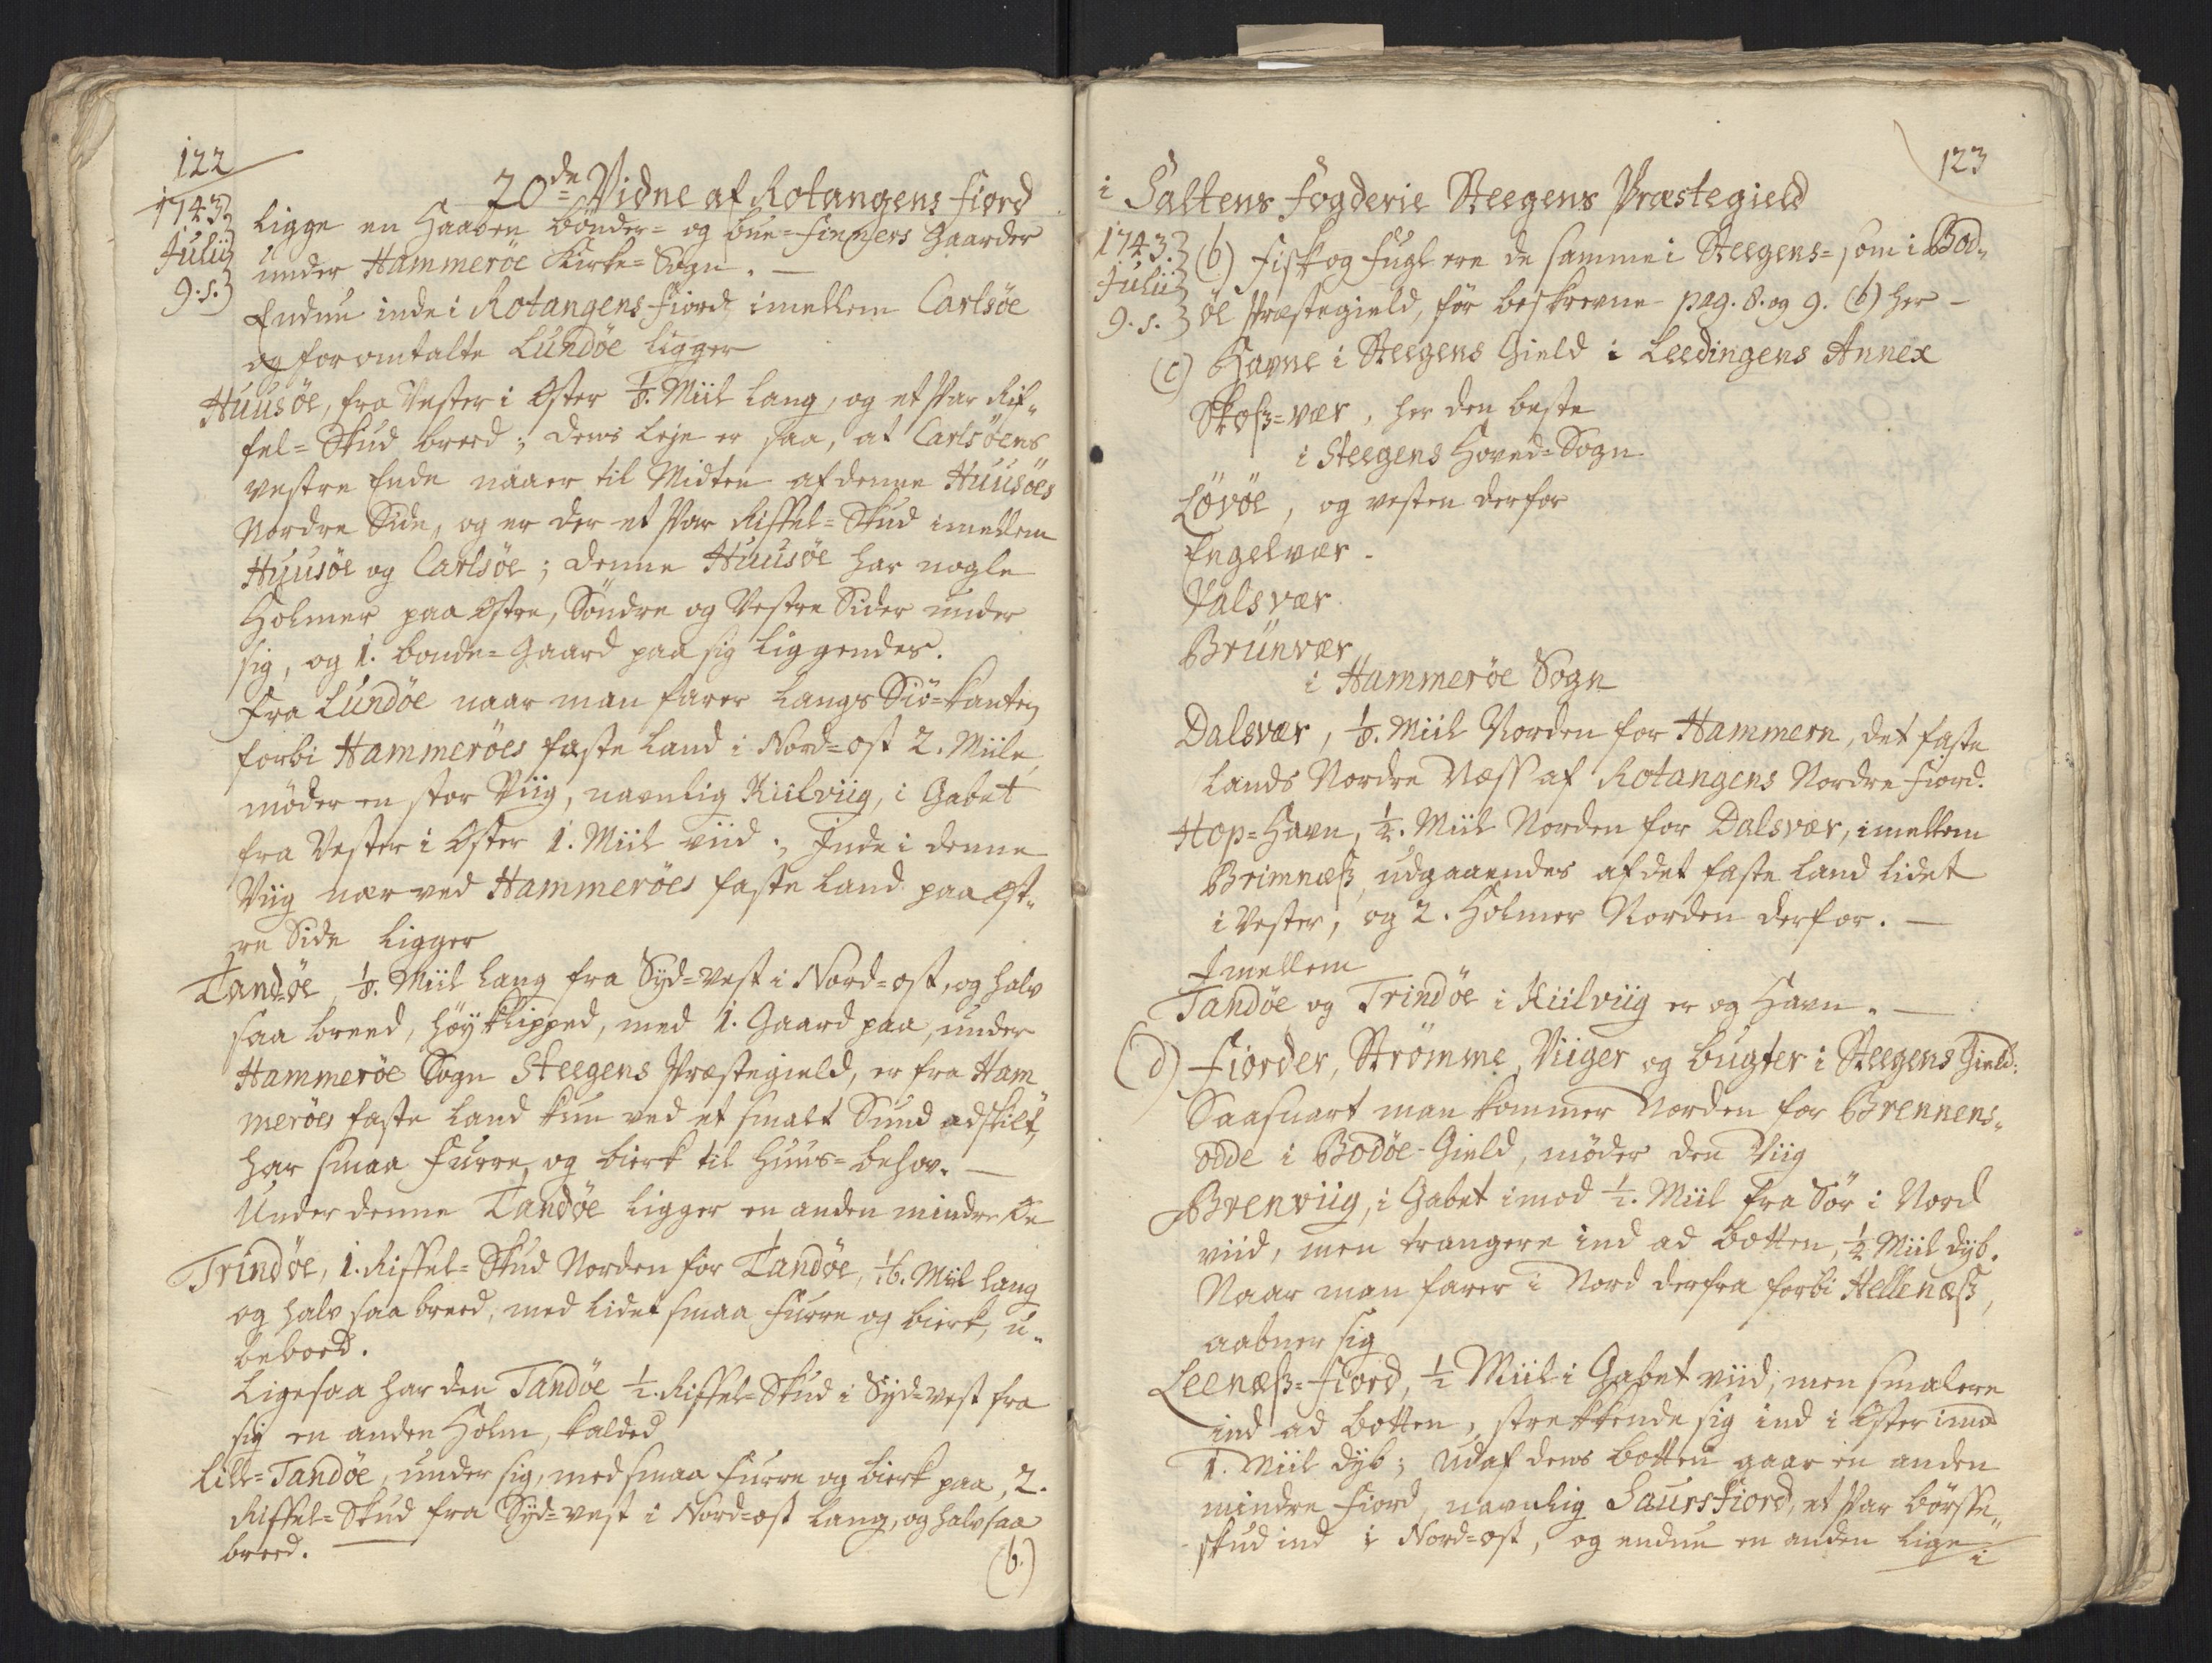 122
20de Vidne af Rotangens Fiord
1743.
Julii
9. s.
ligge en Haaben bönder= og bue=finners Gaarder
under Hammeröe Kirke=Sogn. —
Endnu inde i Rotangens fiord imellem Carlsöe
og foromtalte Lundöe ligger
Huusöe, fra Vester i Öster 1/8. Miil lang, og et Par Rif„
fel=Skud breed; dens Leje er saa, at Carlsöens
vestre Ende naaer til Midten af denne Huusöes
Nordre Side, og er der et Par Riffel=Skud imellem
Huusöe og Carlsöe; denne Huusöe har nogle
Holmer paa Östre, Söndre og Vestre Sider under
sig, og 1. bonde=Gaard paa sig liggendes.
Fra Lundöe naar man farer langs Siö=kanten
forbi Hammeröes faste Land i Nord=ost 2. Miile,
möder en stor Viig, navnlig Kiilviig, i Gabet
fra Vester i Öster 1. Miil viid; Inde i denne
Viig nær ved Hammeröes faste Land paa Öst„
re Side ligger
Tandöe, 1/8. Miil lang fra Syd=vest i Nord=ost, og halv
saa breed, höy klipped, med 1. Gaard paa, under
Hammeröe Sogn Steegens Præstegield, er fra Ham„
meröes faste Land kun ved et smalt Sund adskilt,
har smaa Furre og bierk til Huus=behov. —
Under denne Tandöe ligger en anden mindre Öe
Trindöe, 1. Riffel=Skud Norden for Tandöe, 1/16. Miil lang
og halv saa breed, med lidet smaa Furre og bierk, u„
beboed.
Ligesaa har den Tandöe 1/2. Riffel=Skud i Syd=vest fra
sig en anden Holm, kalded
Lille=Tandöe, under sig, med smaa Furre og bierk paa, 2.
Riffel=Skud fra Syd=vest i Nord=ost lang, og halv saa
breed. —
(b.)
123
i Saltens Fogderie Steegens Præstegield
1743.
Julii
9. s.
(b) Fisk og Fugl ere de samme i Steegens= som i Bod„
öe Præstegield, för beskrevne pag. 8. og 9. (b) her —
(c) Havne i Steegens Gield i Leedingens Annex
Skoß=vær, her den beste
i Steegens Hoved=Sogn
Lövöe, og vesten derfor
Engelvær.
Valsvær
Brunvær
i Hammeröe Sogn
Dalsvær, 1/8. Miil Norden for Hammern, det faste
Lands Nordre Næss af Rotangens Nordre Fiord.
Hop=Havn, 1/2. Miil Norden for Dalsvær, imellem
Brimnæß udgaaendes af det faste Land lidet
i Vester, og 2. Holmer Norden derfor. —
Imellem
Tandöe og Trindöe i Kiilviig er og Havn. —
(d) Fiorder, Strömme, Viiger og bugter i Steegens Gield:
Saasnart man kommer Norden for Brennens„
odde i Bodöe=Gield, möder den Viig
Brenviig, i Gabet imod 1/2. Miil fra Sör i Nord
viid, men trangere ind ad botten, 1/2 Miil dyb.
Naar man farer i Nord derfra forbi Hellenæß,
aabner sig
Leenæß=Fiord, 1/2 Miil i Gabet viid, men smalere
ind ad botten, strekkende sig ind i Öster imod
1. Miil dyb; Udaf dens botten gaar en anden
mindre Fiord, navnlig Saursfiord, et Par börsse„
skud ind i Nord=ost, og endnu en anden lige
i